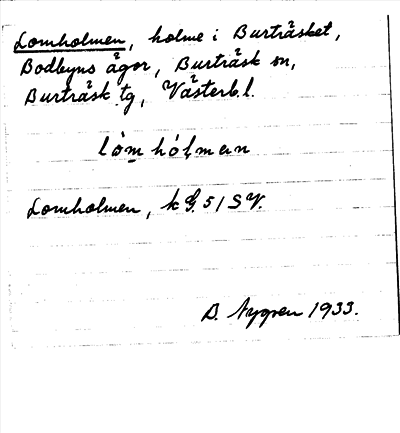 Lomholmen, holme i Burträsket,
Bodbyns ägor, Burträsk sn,
Burträsk tg, Västerb. l.
lòm hól̥man
Lomholmen, k bl. 51 SV.
D. Nygren 1933.